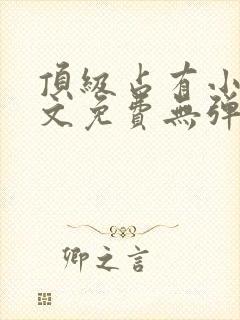 頂級占有小
文免費無彈
卿之言